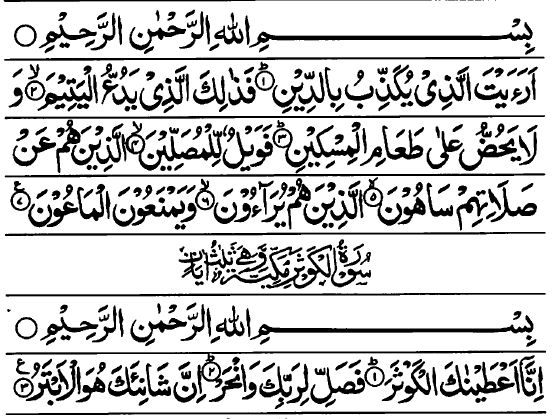 بِسْمِ اللهِ الرَّحْمٰنِ الرَّحِيْمِ ○
اَرَءَيْتَ الَّذِىْ يُكَذِّبُ بِالدِّيْنِ ۱ؕ فَذٰلِكَ الَّذِىْ يَدُعُّ الْيَتِيْمَ ۲ۙ وَ
لَا يَحُضُّ عَلٰى طَعَامِ الْمِسْكِيْنِ ۳ؕ فَوَيْلٌ لِّلْمُصَلِّيْنَ ۴ۙ الَّذِيْنَ هُمْ عَنْ
صَلَاتِهِمْ سَاهُوْنَ ۵ۙ الَّذِيْنَ هُمْ يُرَآءُوْنَ ۶ۙ وَيَمْنَعُوْنَ الْمَاعُوْنَ ۷ع
سُوْرَةُ الْكَوْثَرِ مَكِّيَّةٌ وَّهِىَ ثَلٰثُ اٰيَاتٍ
بِسْمِ اللهِ الرَّحْمٰنِ الرَّحِيْمِ ○
اِنَّاۤ اَعْطَيْنٰكَ الْكَوْثَرَ ۱ؕ فَصَلِّ لِرَبِّكَ وَانْحَرْ ۲ؕ اِنَّ شَانِئَكَ هُوَ الْاَبْتَرُ ۳ع